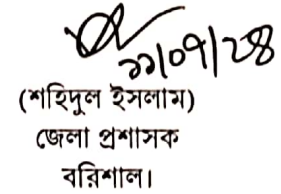 ১১/০৭/২৪
(শহিদুল ইসলাম)
জেলা প্রশাসক
বরিশাল।